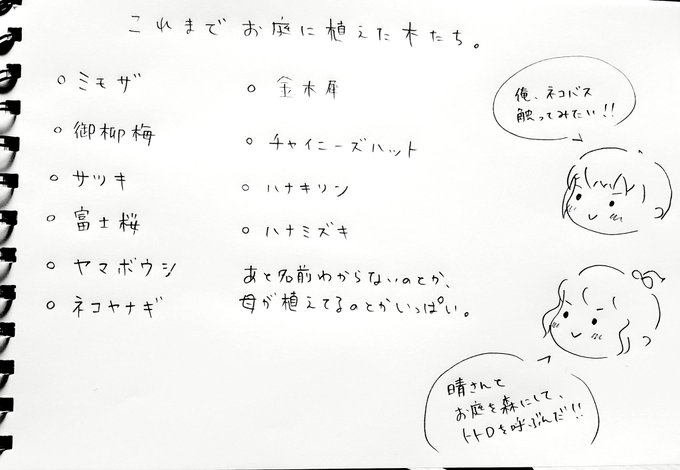 これまでお庭に植えた木たち。
○ ミモザ
○ 御柳梅
○ サツキ
○ 富士桜
○ ヤマボウシ
○ ネコヤナギ
○ 金木犀
○ チャイニーズハット
○ ハナキリン
○ ハナミズキ
あと名前わからないのとか、
母が植えてるのとかいっぱい。
俺、ネコバス
触ってみたい!!
晴さんと
お庭を森にして、
トトロを呼ぶんだ!!